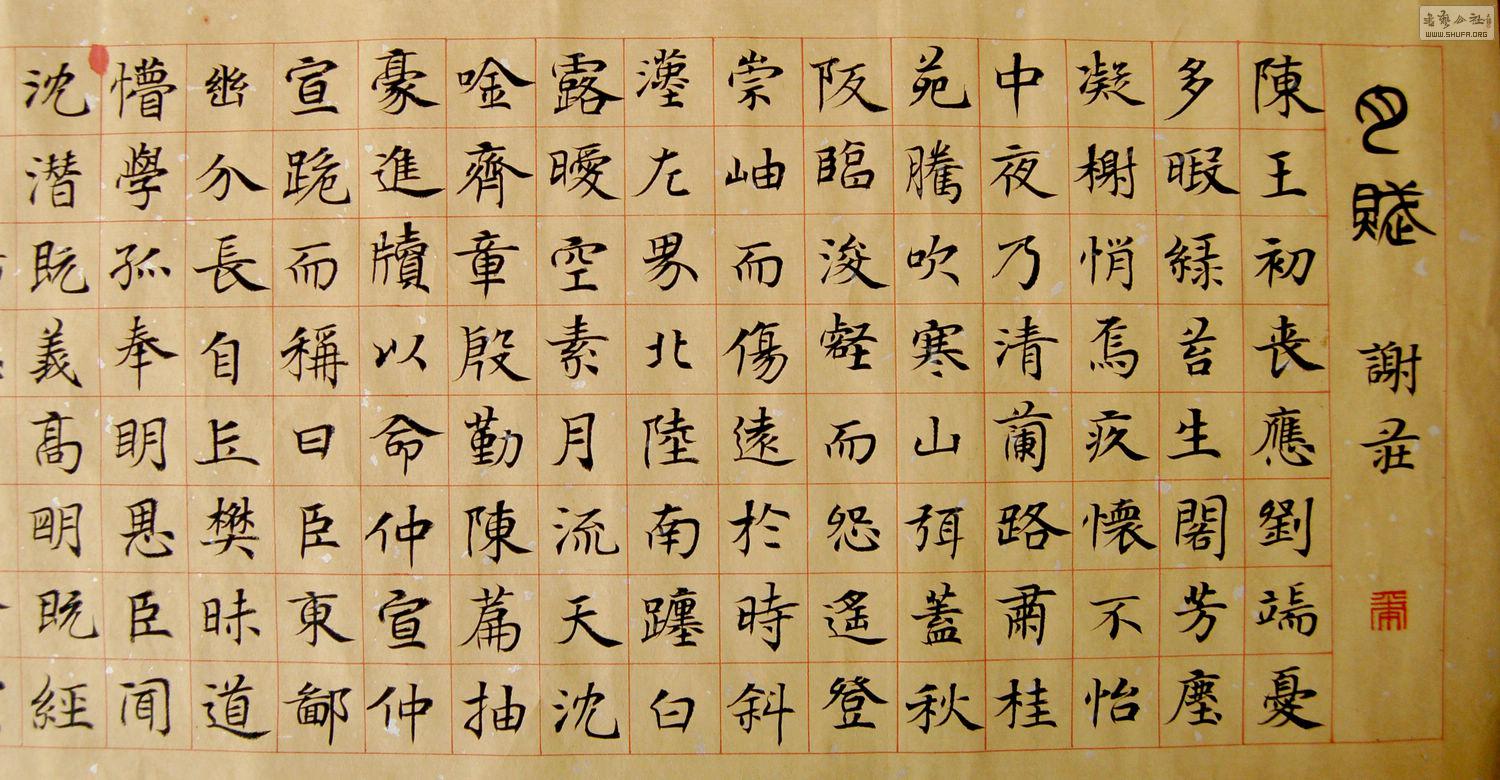 月賦 謝莊
陳王初喪應劉端憂
多暇綠苔生閣芳塵
凝榭悄焉疚懷不怡
中夜乃清蘭路肅桂
苑騰吹寒山弭蓋秋
阪臨浚壑而怨遙登
崇岫而傷遠於時斜
漢左界北陸南躔白
露曖空素月流天沈
唫齊章殷勤陳篇抽
豪進牘以命仲宣仲
宣跪而稱曰臣東鄙
幽介長自丘樊昧道
懵學孤奉明恩臣聞
沈潛既義高明既經
書藝公社
WWW.SHUFA.ORG